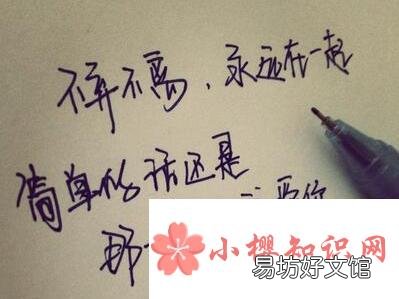 不弃不离，永远在一起
简单的话还是
那
爱你
小樱知识网
易坊好文馆